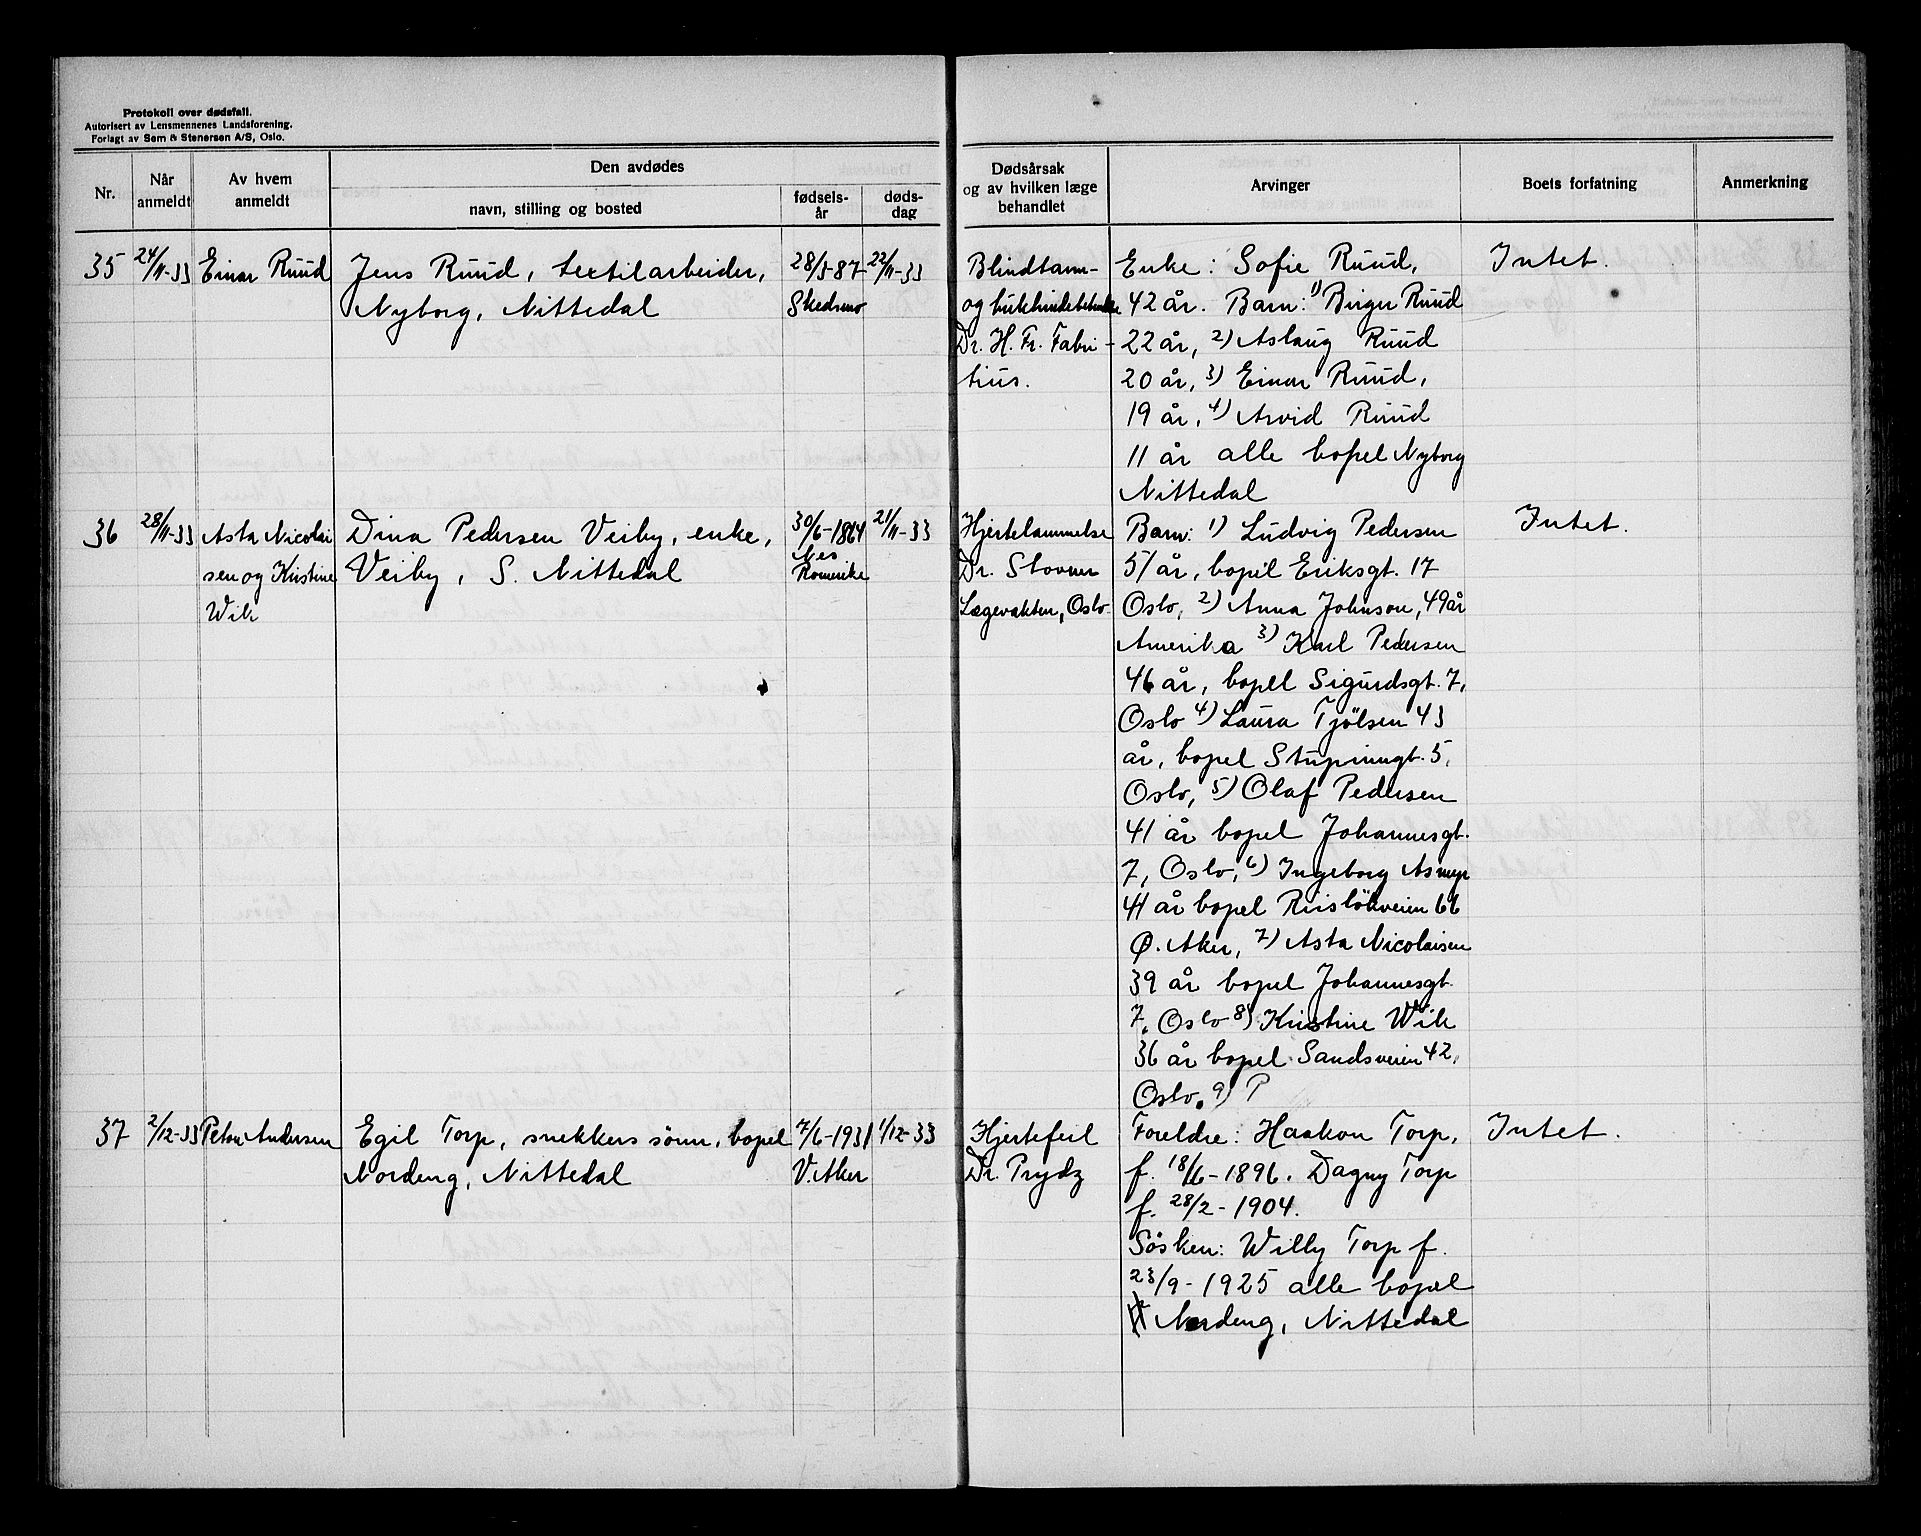 Protokoll over dødsfall.
Autorisert av Lensmennenes Landsforening.
Forlagt av Sem & Stenersen A/S, Oslo.
Nr.
Når anmeldt
Av hvem anmeldt
Den avdødes
navn, stilling og bosted
fødsels-år
døds-dag
Dødsårsak og av hvilken læge behandlet
Arvinger
Boets forfatning
Anmerkning
35
24/11-33
Einar Ruud
Jens Ruud, textilarbeider,
Nyborg, Nittedal
28/5-87
Skedsmo
22/11-33
Blindtarm-
og
Dr. H. Fr. Fabri-
tius.
Enke: Sofie Ruud,
42 år. Barn: 1) Birger Ruud
22 år, 2) Aslaug Ruud
20 år, 3) Einar Ruud,
19 år, 4) Arvid Ruud
11 år alle bopel Nyborg
Nittedal
Intet.
36
28/11-33
Asta Nicolai
sen og Kristine
Wik
Dina Pedersen Veiby, enke,
Veiby, S. Nittedal
30/6-1864
Nes
Romerike
21/11-33
Hjertelammelse
Dr. Stovner
Lægevakten, Oslo.
Barn: 1) Ludvig Pedersen
51 år, bopel Eriksgt. 17
Oslo, 2) Anna Johnson, 49 år
Amerika 3) Karl Pedersen
46 år, bopel Sigurdsgt. 7,
Oslo 4) Laura Tjölsen 43
år, bopel Stupinngt. 5,
Oslo, 5) Olaf Pedersen
41 år bopel Johannesgt.
7, Oslo, 6) Ingeborg Asmyr
41 år bopel Risløkveien 66
Ø. Aker, 7) Asta Nicolaisen
39 år bopel Johannesgt.
7, Oslo 8) Kristine Wik
36 år bopel Sandsveien 42,
Oslo. 9) P
Intet.
37
2/12-33
Petra Andersen
Egil Torp, snekkers sönn, bopel
Nordeng, Nittedal
7/6-1931
V. Aker
1/12-33
Hjertefeil
Dr. Prydz
Foreldre: Haakon Torp,
f. 18/6-1896. Dagny Torp
f. 28/2-1904.
Sösken: Willy Torp f.
23/9-1925 alle bopel
Nordeng, Nittedal
Intet.